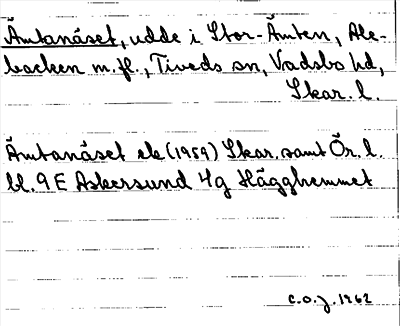 Ämtanäset, udde i Stor-Ämten, Ale-
backen m.fl., Tiveds sn, Vadsbo hd,
Skar. l.
Ämtanäset ek (1959) Skar. samt Ör. l.
bl. 9 E Askersund 4g Hägghemmet
C.O.J. 1962